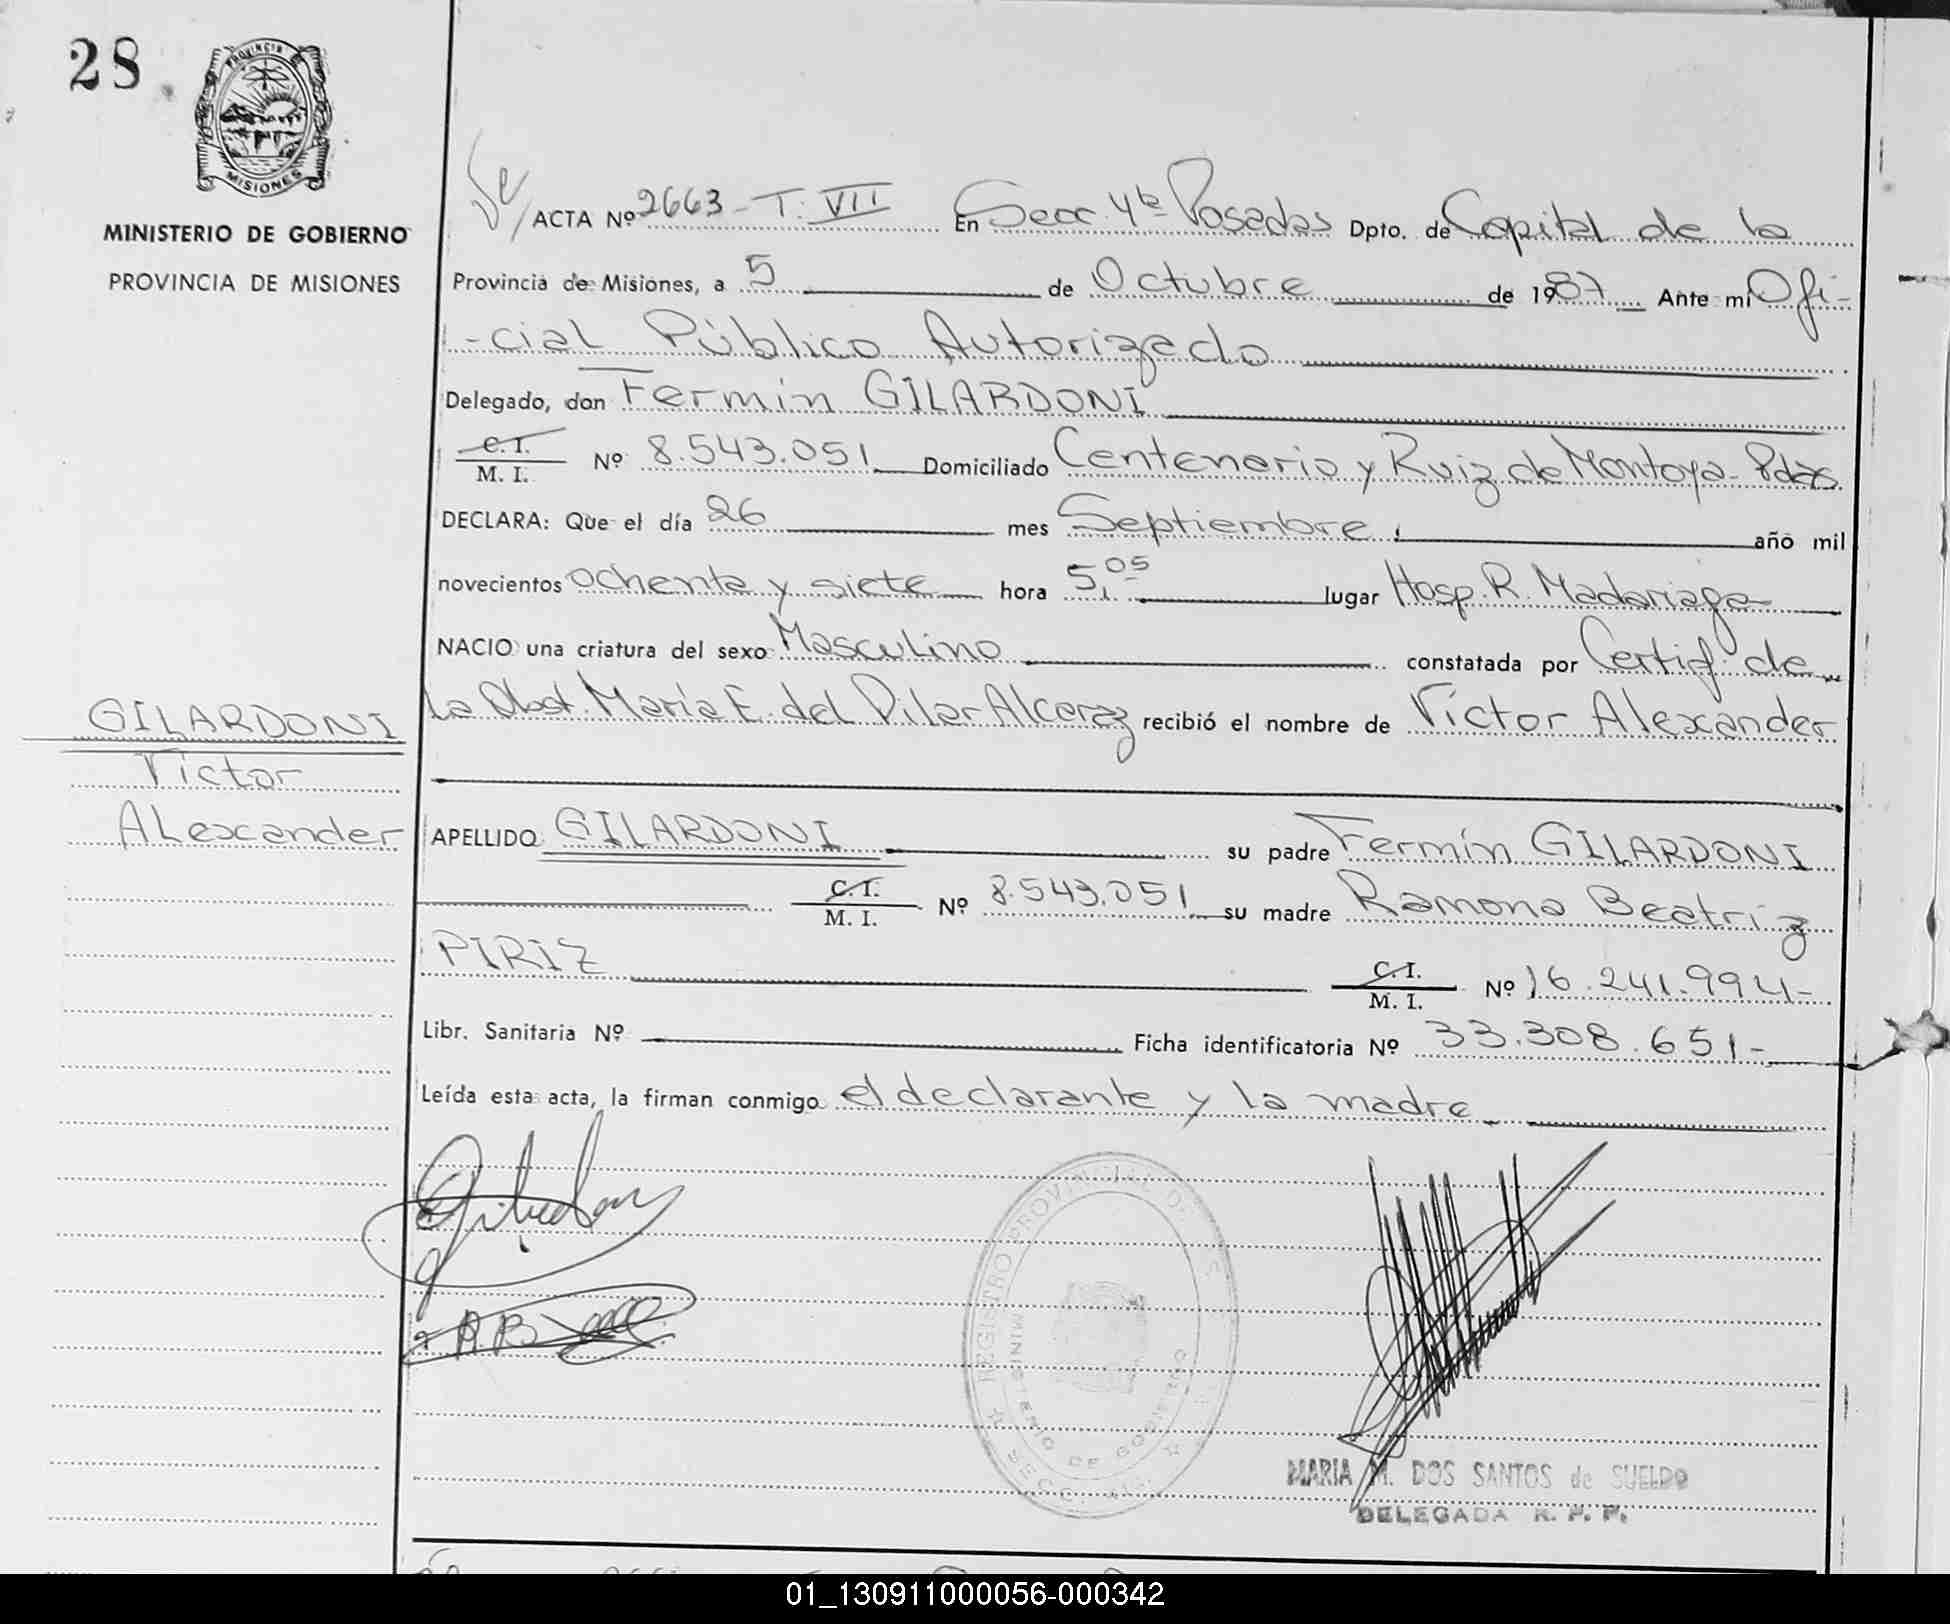 28
PROVINCIA
MISIONES
MINISTERIO DE GOBIERNO
PROVINCIA DE MISIONES
ACTA Nº 2663 - T. VII En Secc. 4ta Posadas Dpto. de Capital de la
Provincia de Misiones, a 5 de Octubre de 1987 Ante mi Ofi-
-cial Público Autorizado
Delegado, don Fermín GILARDONI
C. I.
M. I. Nº 8.543.051 Domiciliado Centenario y Ruiz de Montoya - Pdas.
DECLARA: Que el día 26 mes Septiembre año mil
novecientos ochenta y siete hora 5,05 lugar Hosp. R. Madariaga
NACIO una criatura del sexo Masculino constatada por Certif. de
la Obst. María E. del Pilar Alcaraz recibió el nombre de Víctor Alexander
GILARDONI
Víctor
Alexander
APELLIDO GILARDONI su padre Fermín GILARDONI
C. I.
M. I. Nº 8.543.051 su madre Ramona Beatríz
PIRIZ C. I.
M. I. Nº 16.241.994-
Libr. Sanitaria Nº Ficha identificatoria Nº 33.308.651-
Leída esta acta, la firman conmigo el declarante y la madre
REGISTRO PROVINCIAL DE
MINISTERIO DE GOBIERNO
SECC.
MARIA M. DOS SANTOS de SUELDO
DELEGADA R. P. P.
01_130911000056-000342